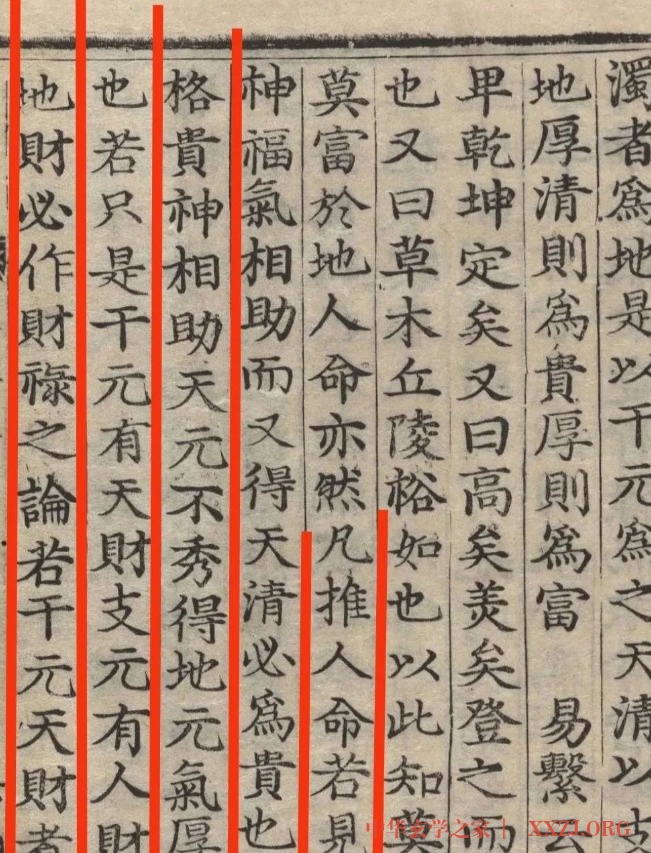 濁者為地是以干元為之天清以
地厚清則為貴厚則為富　易繫
卑乾坤定矣又曰高矣羙矣登之而
也又曰草木丘陵㮤如也以此知莫
莫富於地人命亦然凡推人命若見
神福氣相助而又得天清必為貴也
格貴神相助天元不秀得地元氣厚
也若只是干元有天財支元有人財
地財必作財祿之論若干元天財者
中华玄学之家 | XXZJ.ORG